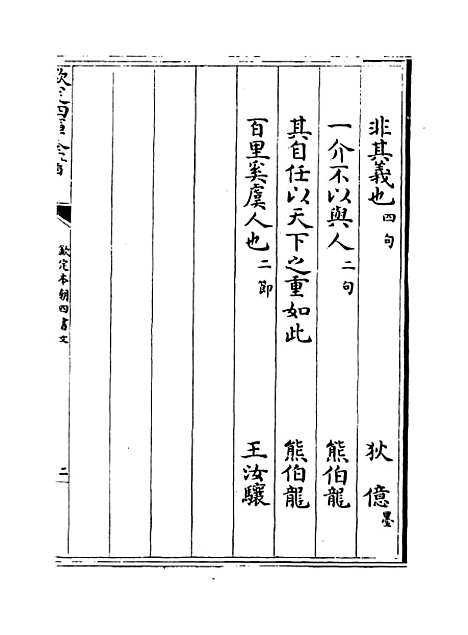 非其義也 四句 狄億 墨
一介不以與人 二句 熊伯龍
其自任以天下之重如此 熊伯龍
百里奚虞人也 二節 王汝驤
欽定四庫全書
欽定本朝四書文
二